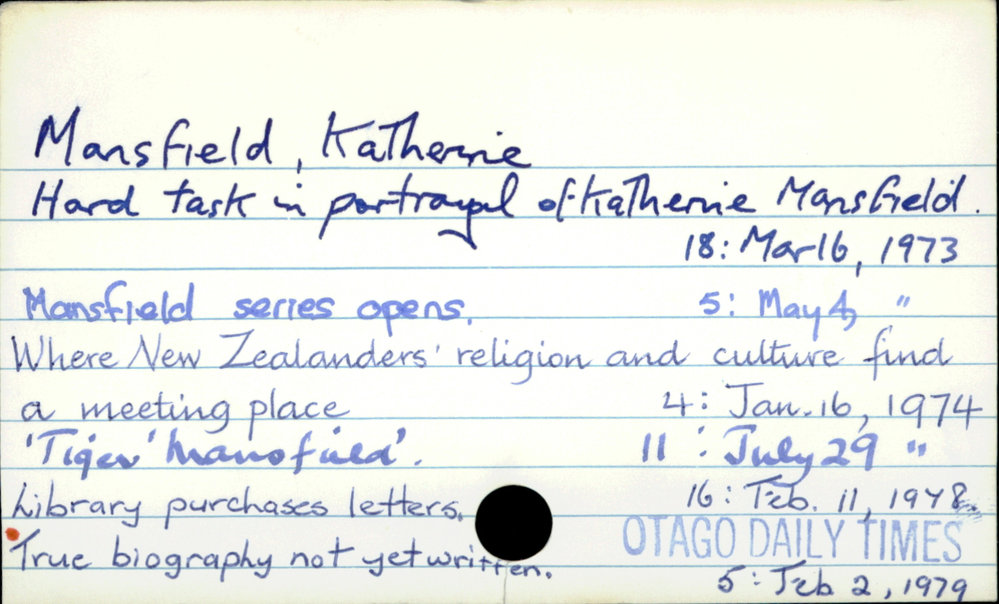 Mansfield, Katherine
Hard task in portrayal of Katherine Mansfield.
18: Mar 16, 1973
Mansfield series opens. 5: May 4, "
Where New Zealanders' religion and culture find
a meeting place 4: Jan. 16, 1974
'Tiger' Mansfield'. 11: July 29 "
Library purchases letters. 16: Feb. 11, 1978
OTAGO DAILY TIMES
True biography not yet written.
5: Feb 2, 1979